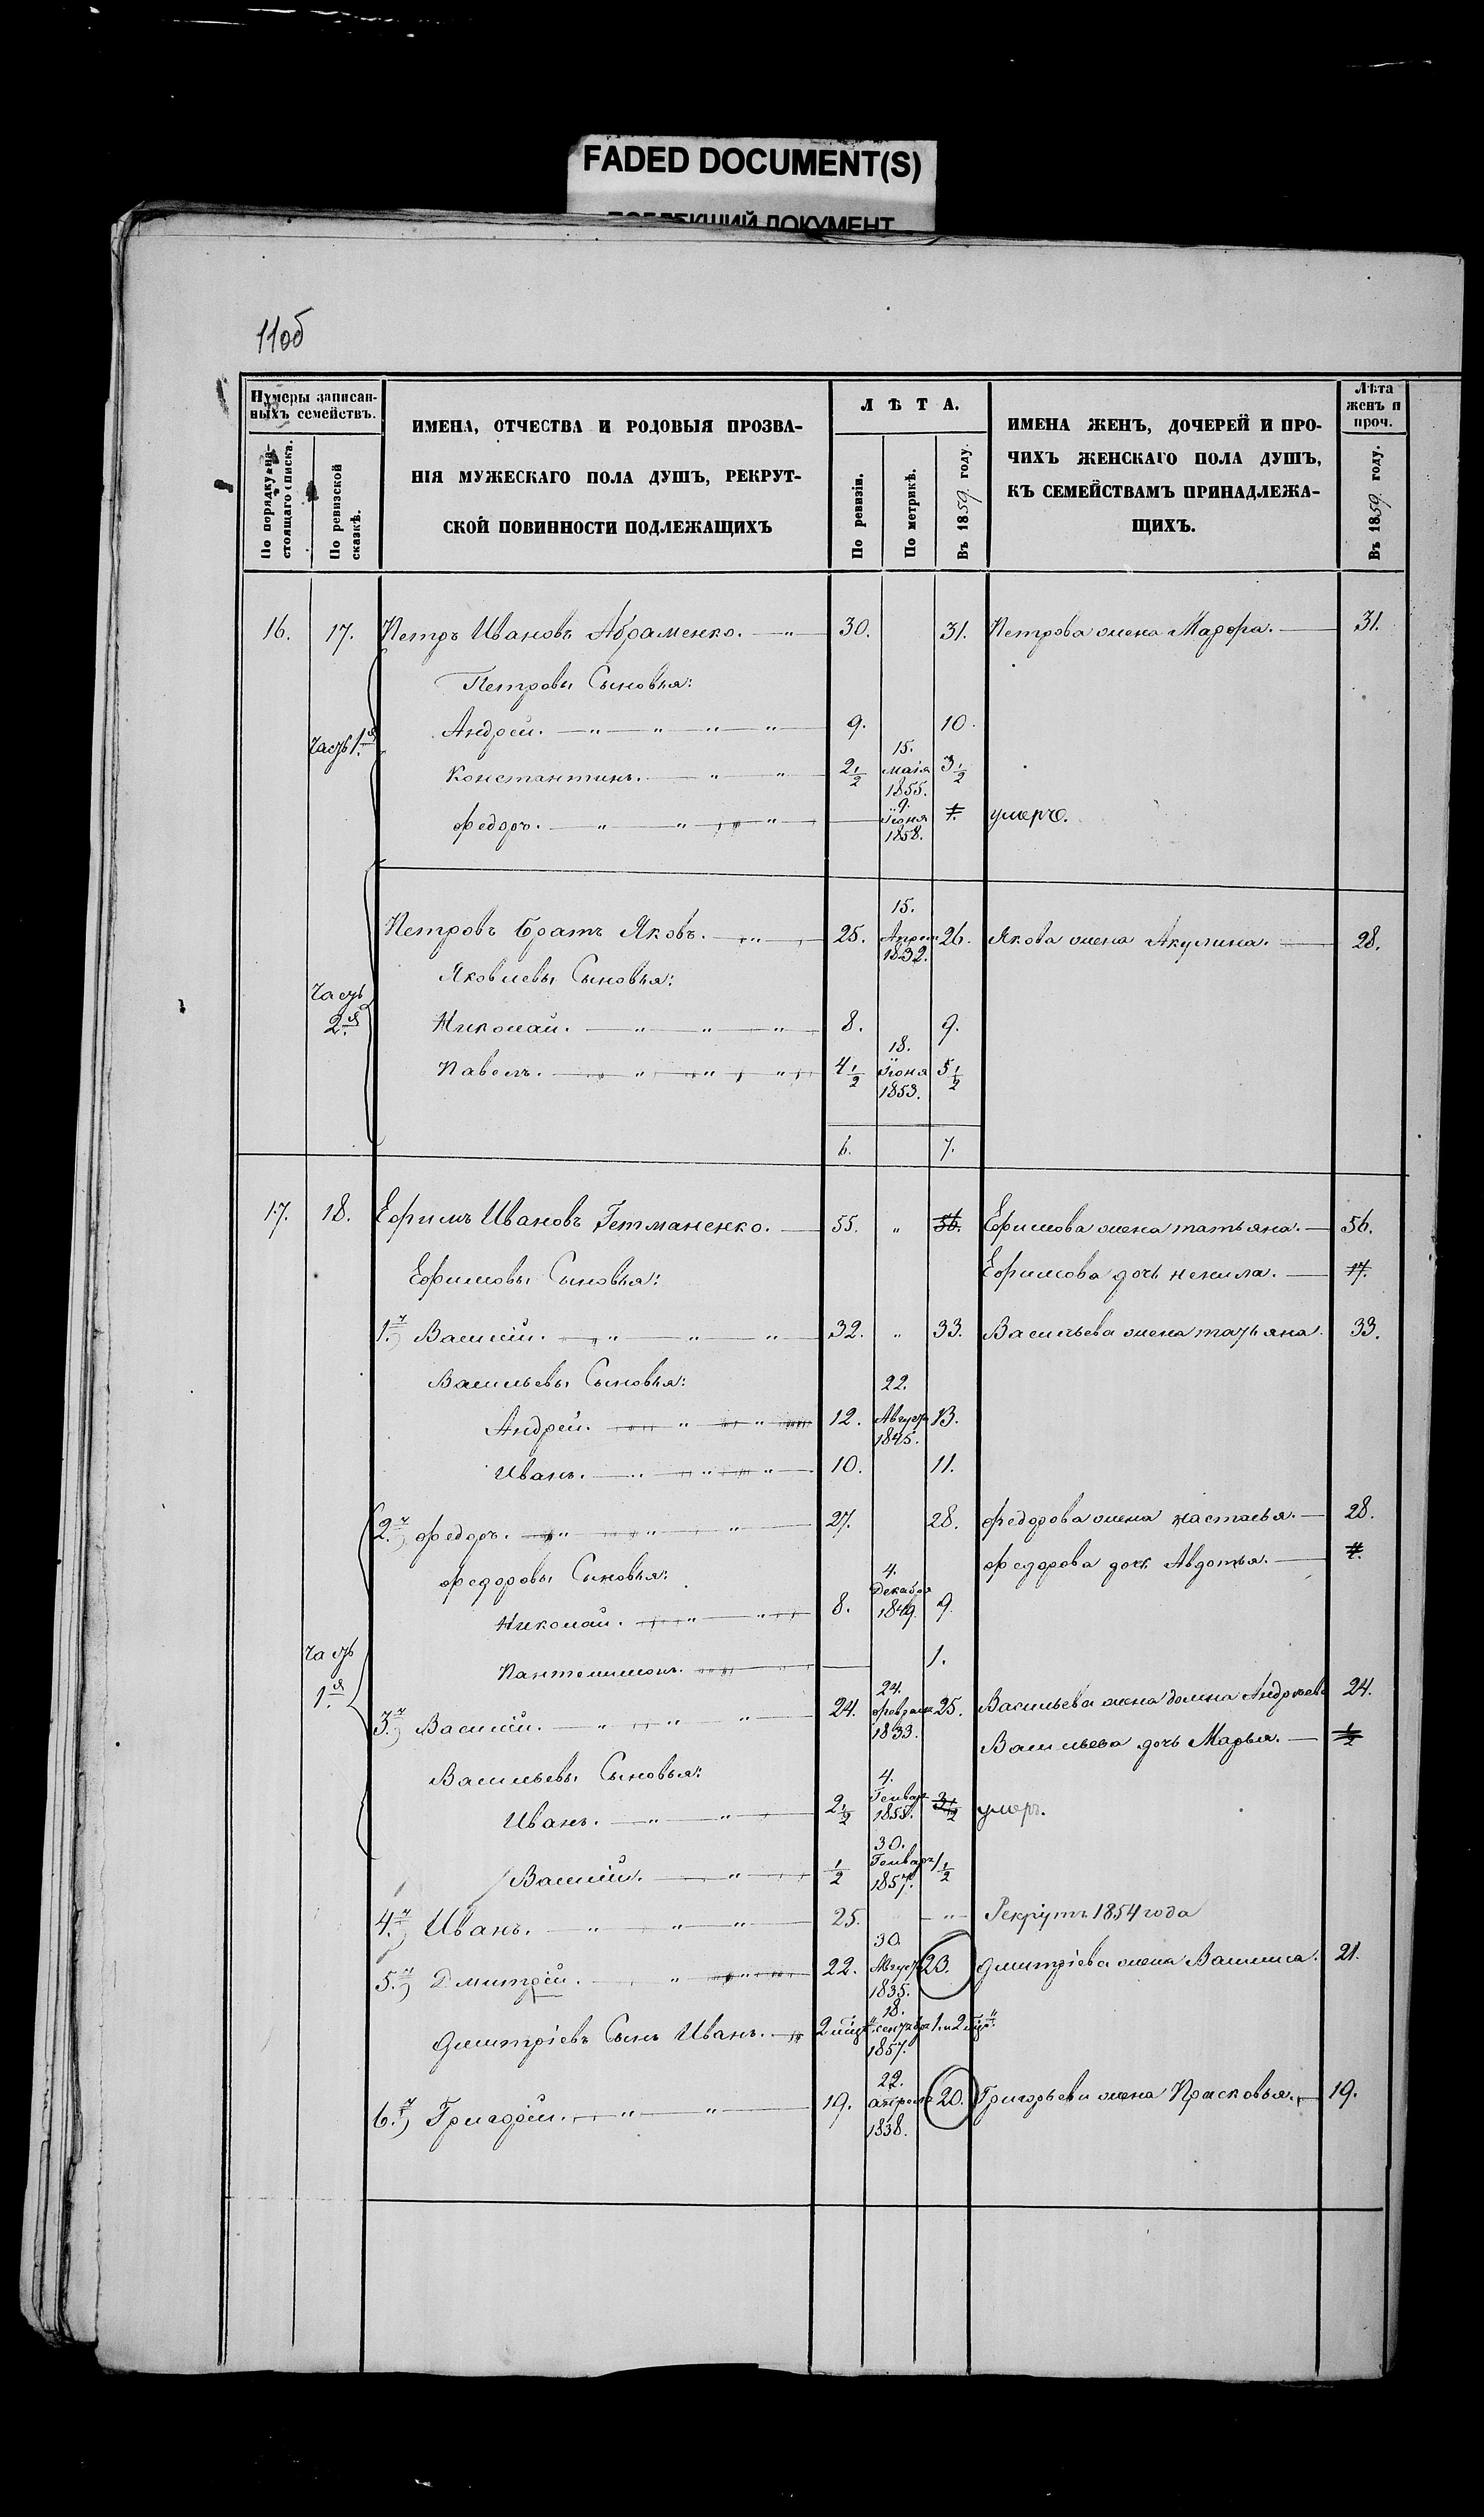 FADED DOCUMENT(S)
ПОБЛЕКШИЙ ДОКУМЕНТ
11об
Нумеры записан-
ныхъ семействъ.
По порядку на-
стоящаго списка.
По ревизской
сказкѣ.
ИМЕНА, ОТЧЕСТВА И РОДОВЫЯ ПРОЗВА-
НІЯ МУЖЕСКАГО ПОЛА ДУШЪ, РЕКРУТ-
СКОЙ ПОВИННОСТИ ПОДЛЕЖАЩИХЪ
ЛѢТА.
По ревизіи.
По метрикѣ.
Въ 1859 году.
ИМЕНА ЖЕНЪ, ДОЧЕРЕЙ И ПРО-
ЧИХЪ ЖЕНСКАГО ПОЛА ДУШЪ,
КЪ СЕМЕЙСТВАМЪ ПРИНАДЛЕЖА-
ЩИХЪ.
Лѣта
женъ и
проч.
Въ 1859 году.
16. 17. Петръ Ивановъ Абраменко. 30. 31. Петрова жена 31.
Петровы Сыновья:
Часть 1я
Андрей. 9. 10.
Константинъ. 2 1/2 15. Маія 1855. 3 1/2
Федоръ. 9. Іюня 1858. 1. умеръ.
Петровъ братъ Яковъ. 25. 15. Апреля 1832. 26. Якова жена Акулина. 28.
Яковлевы Сыновья:
Часть 2я
Николай. 8. 9.
Павелъ. 4 1/2 18. Іюня 1853. 5 1/2
6. 7.
17. 18. Ефимъ Ивановъ Гетманенко. 55. " 56. Ефимова жена татьяна. 56.
Ефимовы Сыновья: Ефимова дочь ненила. 17.
1.й) Василій. 32. " 33. Васильева жена татьяна. 33.
Васильевы Сыновья:
Андрей. 12. 22. Август 1845. 13.
Иванъ. 10. 11.
2.й) Федоръ. 27. 28. Федорова жена настасья. 28.
Федоровы Сыновья: Федорова доч. Авдотья.
Николай. 8. 4. Декабря 1849. 9.
Пантелимонъ. 1.
Часть 1я
3.й) Василій. 24. 24. Февраля 1833. 25. Васильева жена домна Андреева 24.
Васильева дочь Марья. 1/2
Васильевы Сыновья:
Иванъ. 2 1/2 4. Генвар 1855. 3 1/2 умеръ.
Василій. 1/2 30. Генваря 1857. 1 1/2
4.й) Иванъ. 25. " Рекрутъ 1854 года
5.й) Дмитрій. 22. 30. Август 1835. 23. Дмитріева жена Василиса. 21.
Дмитріевъ Сынъ Иванъ. 2 мцъ. 18. сентября 1857. 1. и 2 мцъ.
6.й) Григорій. 19. 22. апреля 1838. 20. Григорьева жена Прасковья. 19.